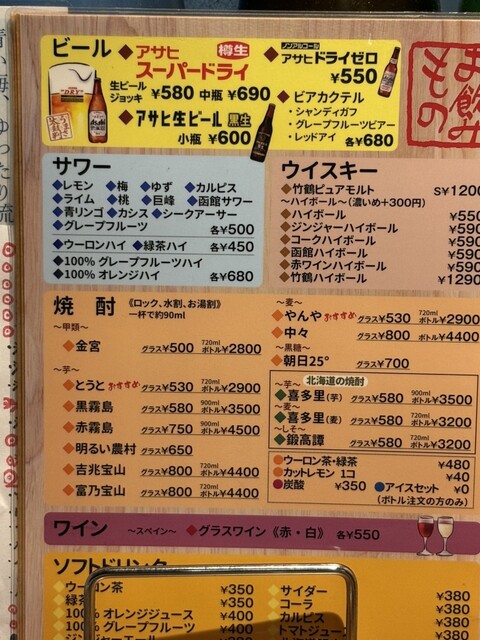 お飲みもの
ビール
◆アサヒ スーパードライ 樽生
生ビール ジョッキ ¥580 中瓶 ¥690
◆アサヒ生ビール 黒生
小瓶 ¥600
ノンアルコール
◆アサヒドライゼロ
¥550
◆ビアカクテル
・シャンディガフ
・グレープフルーツビアー
・レッドアイ 各¥680
サワー
◆レモン ◆梅 ◆ゆず ◆カルピス
◆ライム ◆桃 ◆巨峰 ◆函館サワー
◆青リンゴ ◆カシス ◆シークアーサー
◆グレープフルーツ 各¥500
◆ウーロンハイ ◆緑茶ハイ 各¥450
◆100% グレープフルーツハイ
◆100% オレンジハイ 各¥680
ウイスキー
◆竹鶴ピュアモルト S¥1200
〜ハイボール〜(濃いめ+300円)
◆ハイボール ¥550
◆ジンジャーハイボール ¥590
◆コークハイボール ¥590
◆函館ハイボール ¥590
◆赤ワインハイボール ¥590
◆竹鶴ハイボール ¥1290
焼酎 《ロック、水割、お湯割》
一杯で約90ml
〜甲類〜
◆金宮 グラス¥500 720ml ボトル¥2800
〜芋〜
◆とうと おすすめ グラス¥530 720ml ボトル¥2900
◆黒霧島 グラス¥580 900ml ボトル¥3500
◆赤霧島 グラス¥750 900ml ボトル¥4500
◆明るい農村 グラス¥650
◆吉兆宝山 グラス¥800 720ml ボトル¥4400
◆富乃宝山 グラス¥800 720ml ボトル¥4400
〜麦〜
◆やんや おすすめ グラス¥530 720ml ボトル¥2900
◆中々 グラス¥800 720ml ボトル¥4400
〜黒糖〜
◆朝日25° グラス¥700
北海道の焼酎
〜芋〜
◆喜多里(芋) グラス¥580 900ml ボトル¥3500
〜麦〜
◆喜多里(麦) グラス¥580 720ml ボトル¥3200
〜しそ〜
◆鍛高譚 グラス¥580 720ml ボトル¥3200
●ウーロン茶・緑茶 ¥480
●カットレモン 1コ ¥40
●炭酸 ¥350 ●アイスセット ¥0
(ボトル注文の方のみ)
ワイン 〜スペイン〜 ◆グラスワイン《赤・白》 各¥550
ソフトドリンク
◆ウーロン茶 ¥350
◆緑茶 ¥350
◆100% オレンジジュース ¥400
◆100% グレープフルーツ ¥400
◆サイダー ¥380
◆コーラ ¥380
◆カルピス ¥380